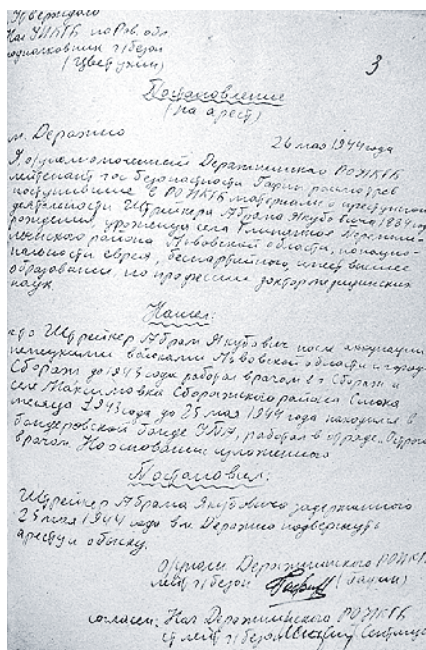 Утверждаю
Нач УНКГБ по Ров. обл
подполковник г/безоп
(Цветухин)
3
Постановление
(на арест)
м. Деражно 26 мая 1944 года
Я оуполномоченный Деражнянского РОНКГБ
лейтенант гос безопасности Гафин рассмотрев
поступившие в РОНКГБ материалы о преступной
деятельности Штрейкер Абрама Якубовича
рождения, уроженца села
района Львовской области, по нацио-
нальности еврея, беспартийного, имеет высшее
образование, по профессии доктор медицинских
наук.
Нашел:
что Штрейкер Абрам Якубович после оккупации
немецкими войсками Львовской области и город
Сбораж до 1943 года работал врачом в г Сбораж и
селе Сборажского района С
месяца 1943 года до 25 мая 1944 года находился в
бандеровской банде УПА, работал в отряде
врачом. На основании изложенного
Постановил:
Штрейкер Абрама Якубовича задержанного
25 мая 1944 года в м. Деражно подвергнуть
аресту и обыску.
Деражнянского РОНКГБ
лейт г/безоп (Гафин)
согласен: Нач Деражнянского РОНКГБ
ст лейт г/безоп